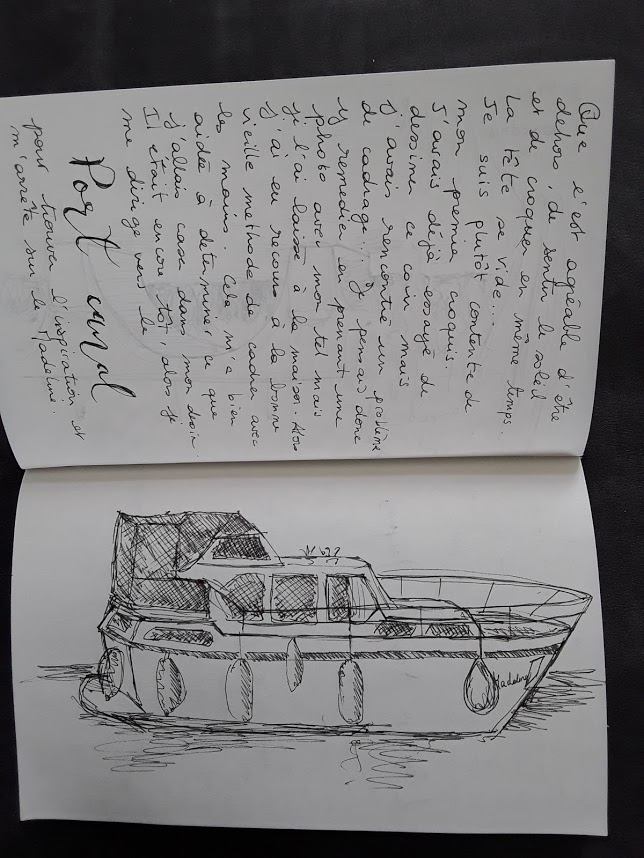 Que c'est agéable d'être
dehors, de sentir le soleil
et de croquer en même temps.
La tête se vide...
Je suis plutôt contente de
mon premier croquis.
J'avais déjà essayé de
dessiner ce coin mais
j'avais rencontré un problème
de cadrage... Je pensais donc
y remedier en prenant une
photo avec mon tel mais
je l'ai laissé à la maison. Alors
j'ai eu recours à la bonne
vieille methode de cadrer avec
les mains. Cela m'a bien
aidée à determiner ce que
j'allais caser dans mon dessin.
Il était encore tôt, alors je
me dirige vers le
Port canal
pour trouver l'inspiration et
m'arrête sur le Madeline.
Madeline